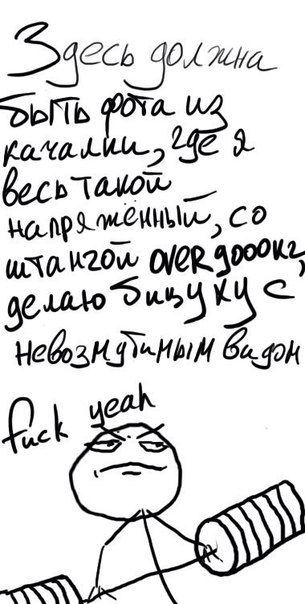 Здесь должна
быть фота из
качалки, где я
весь такой
напряжённый, со
штангой over 9000кг,
делаю бицуху с
невозмутимым видом
fuck yeah